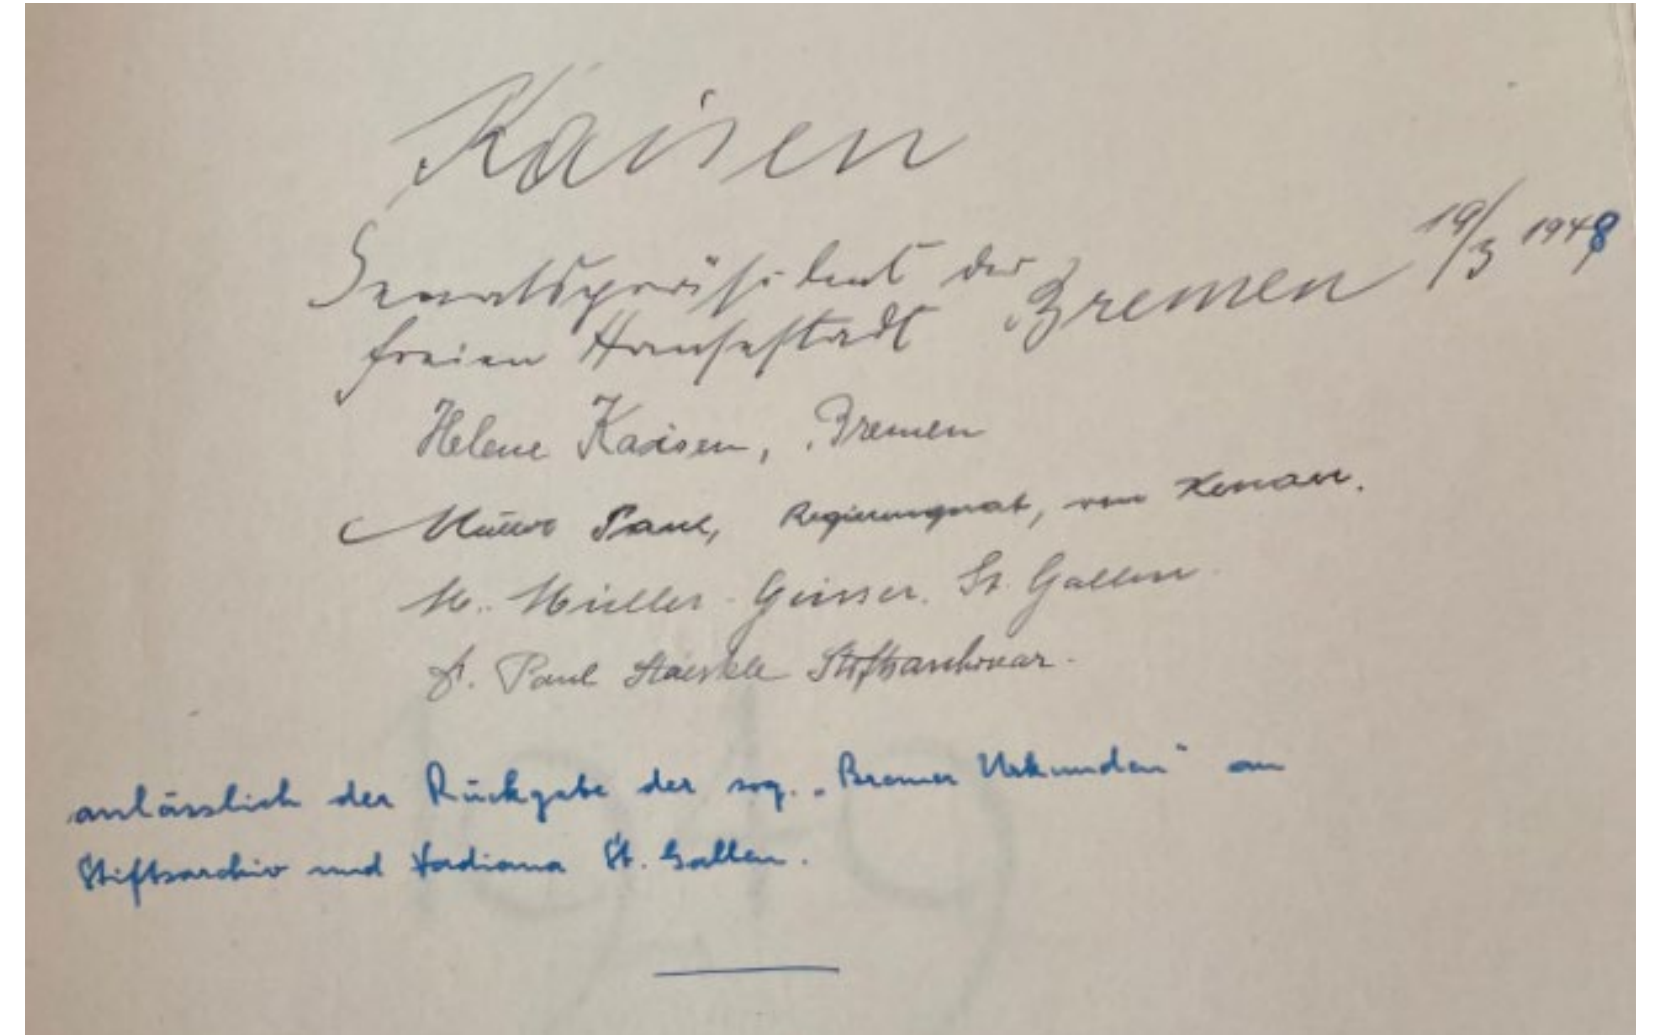 Kaisen
Senatspräsident der
freien Hansestadt Bremen 19/3 1948
Helene Kaisen, Bremen
Müller Paul, Regierungsrat, von
M. Müller-Geisser. St. Gallen
Dr. Paul Staerkle Stiftsarchivar.
anlässlich der Rückgabe der sog. „Bremer Urkunden" an
Stiftsarchiv und Vadiana St. Gallen.